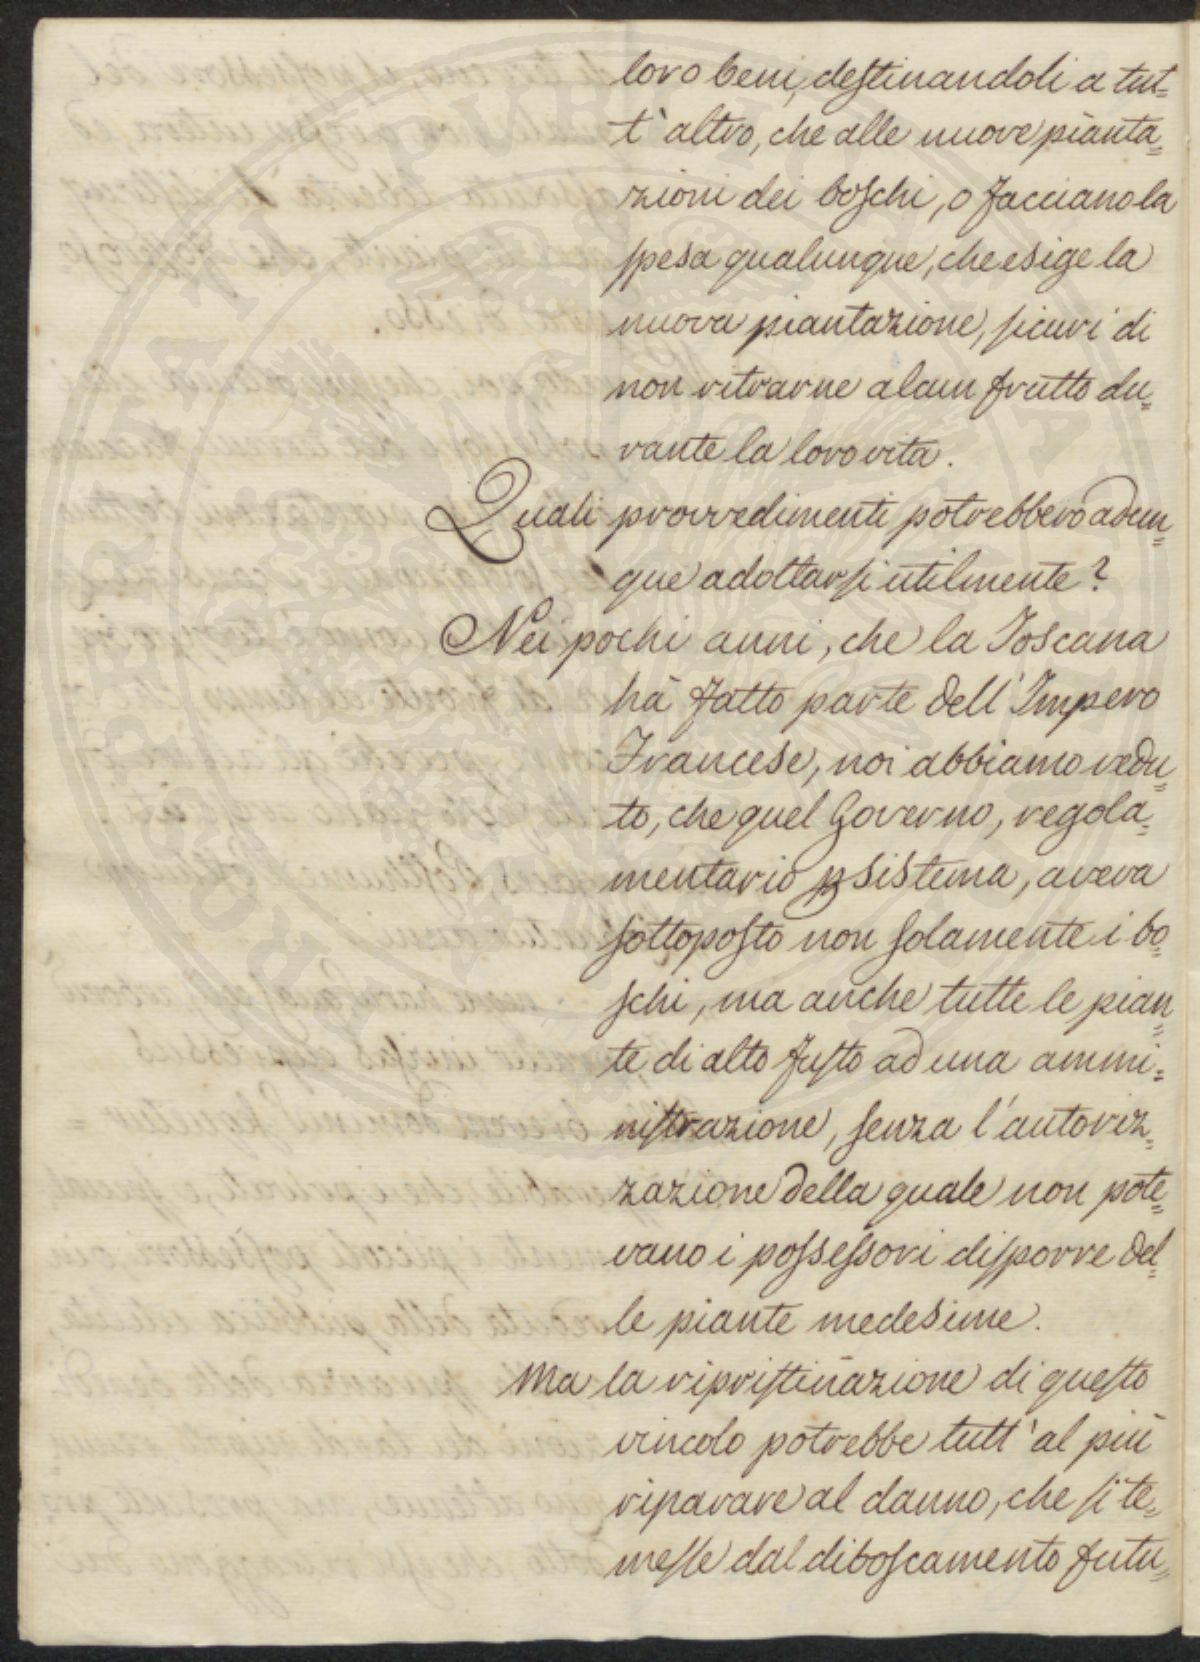 loro beni, destinandoli a tut=
t'altro, che alle nuove pianta=
zioni dei boschi, o facciano la
spesa qualunque, che esige la
nuova piantazione, sicuri di
non ritrarne alcun frutto du=
rante la loro vita.
Quali provvedimenti potrebbero adun=
que adottarsi utilmente?
Nei pochi anni, che la Toscana
hà fatto parte dell'Impero
Francese, noi abbiamo vedu=
to, che quel Governo, regola=
mentario p sistema, aveva
sottoposto non solamente i bo=
schi, ma anche tutte le pian=
te di alto fusto ad una ammi=
nistrazione, senza l'autoriz=
zazione della quale non pote=
vano i possessori disporre del=
le piante medesime.
Ma la ripristinazione di questo
vincolo potrebbe tutt'al più
riparare al danno, che si te=
messe dal diboscamento futu=